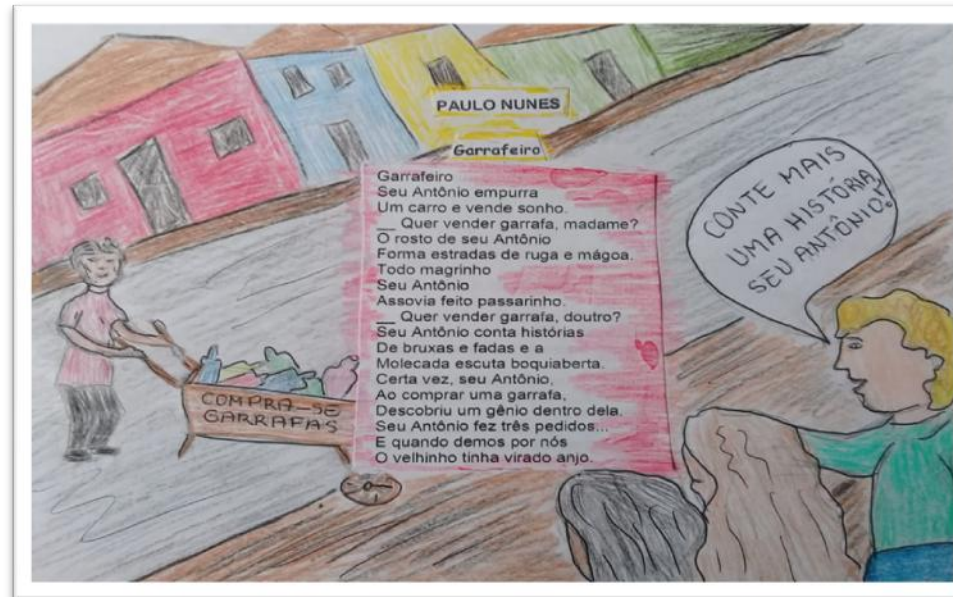 PAULO NUNES
Garrafeiro
Garrafeiro
Seu Antônio empurra
Um carro e vende sonho.
__ Quer vender garrafa, madame?
O rosto de seu Antônio
Forma estradas de ruga e mágoa.
Todo magrinho
Seu Antônio
Assovia feito passarinho.
__ Quer vender garrafa, doutro?
Seu Antônio conta histórias
De bruxas e fadas e a
Molecada escuta boquiaberta.
Certa vez, seu Antônio,
Ao comprar uma garrafa,
Descobriu um gênio dentro dela.
Seu Antônio fez três pedidos...
E quando demos por nós
O velhinho tinha virado anjo.
COMPRA-SE
GARRAFAS
CONTE MAIS
UMA HISTÓRIA,
SEU ANTÔNIO!